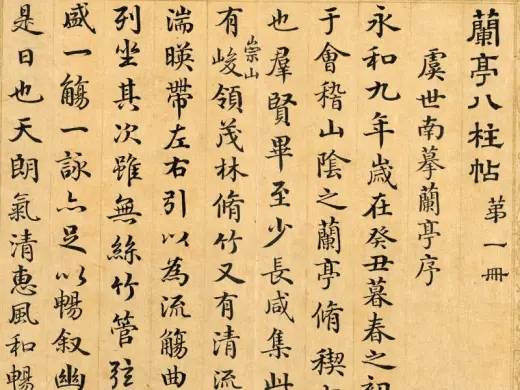 蘭亭八柱帖 苐一冊
虞世南摹蘭亭序
永和九年歲在癸丑暮春之初
于會稽山陰之蘭亭脩稧
也羣賢畢至少長咸集此
崇山
有峻領茂林脩竹又有清流
湍暎帶左右引以為流觴曲
列坐其次雖無絲竹管弦
盛一觴一詠亦足以暢叙幽
是日也天朗氣清惠風和暢